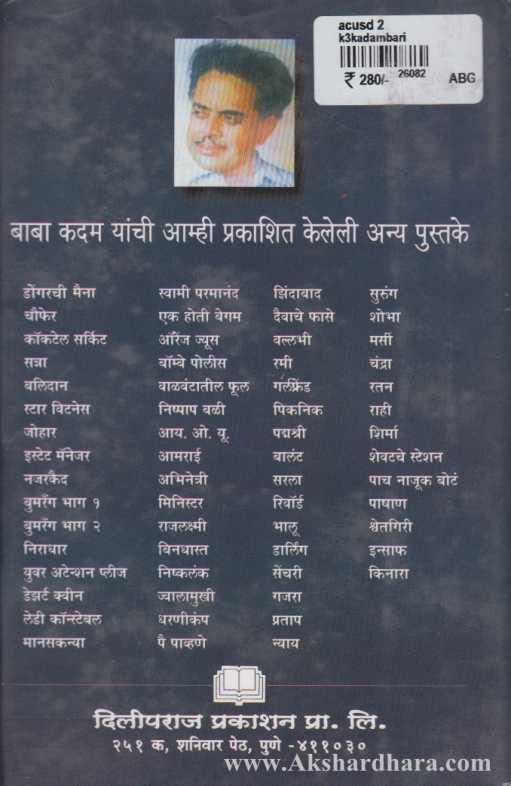 acusd 2
k3kadambari
₹ 280/- 26082 ABG
बाबा कदम यांची आम्ही प्रकाशित केलेली अन्य पुस्तके
डोंगरची मैना स्वामी परमानंद झिंदाबाद सुरुंग
चौफेर एक होती बेगम दैवाचे फासे शोभा
कॉकटेल सर्किट ऑरेंज ज्यूस वल्लभी मर्सी
सत्रा बॉम्बे पोलीस रमी चंद्रा
बलिदान वाळवंटातील फूल गर्लफ्रेंड रतन
स्टार विटनेस निष्पाप बळी पिकनिक राही
जोहार आय. ओ. यू. पद्मश्री शिर्मा
इस्टेट मॅनेजर आमराई बालंट शेवटचे स्टेशन
नजरकैद अभिनेत्री सरला पाच नाजूक बोटं
बुमरँग भाग १ मिनिस्टर रिवॉर्ड पाषाण
बुमरँग भाग २ राजलक्ष्मी भालू श्वेतगिरी
निराधार बिनधास्त डार्लिंग इन्साफ
युवर अटेन्शन प्लीज निष्कलंक सेंचरी किनारा
डेझर्ट क्वीन ज्वालामुखी गजरा
लेडी कॉन्स्टेबल धरणीकंप प्रताप
मानसकन्या पै पाव्हणे न्याय
दिलीपराज प्रकाशन प्रा. लि.
२५१ क, शनिवार पेठ, पुणे -४११०३०
www.Akshardhara.com